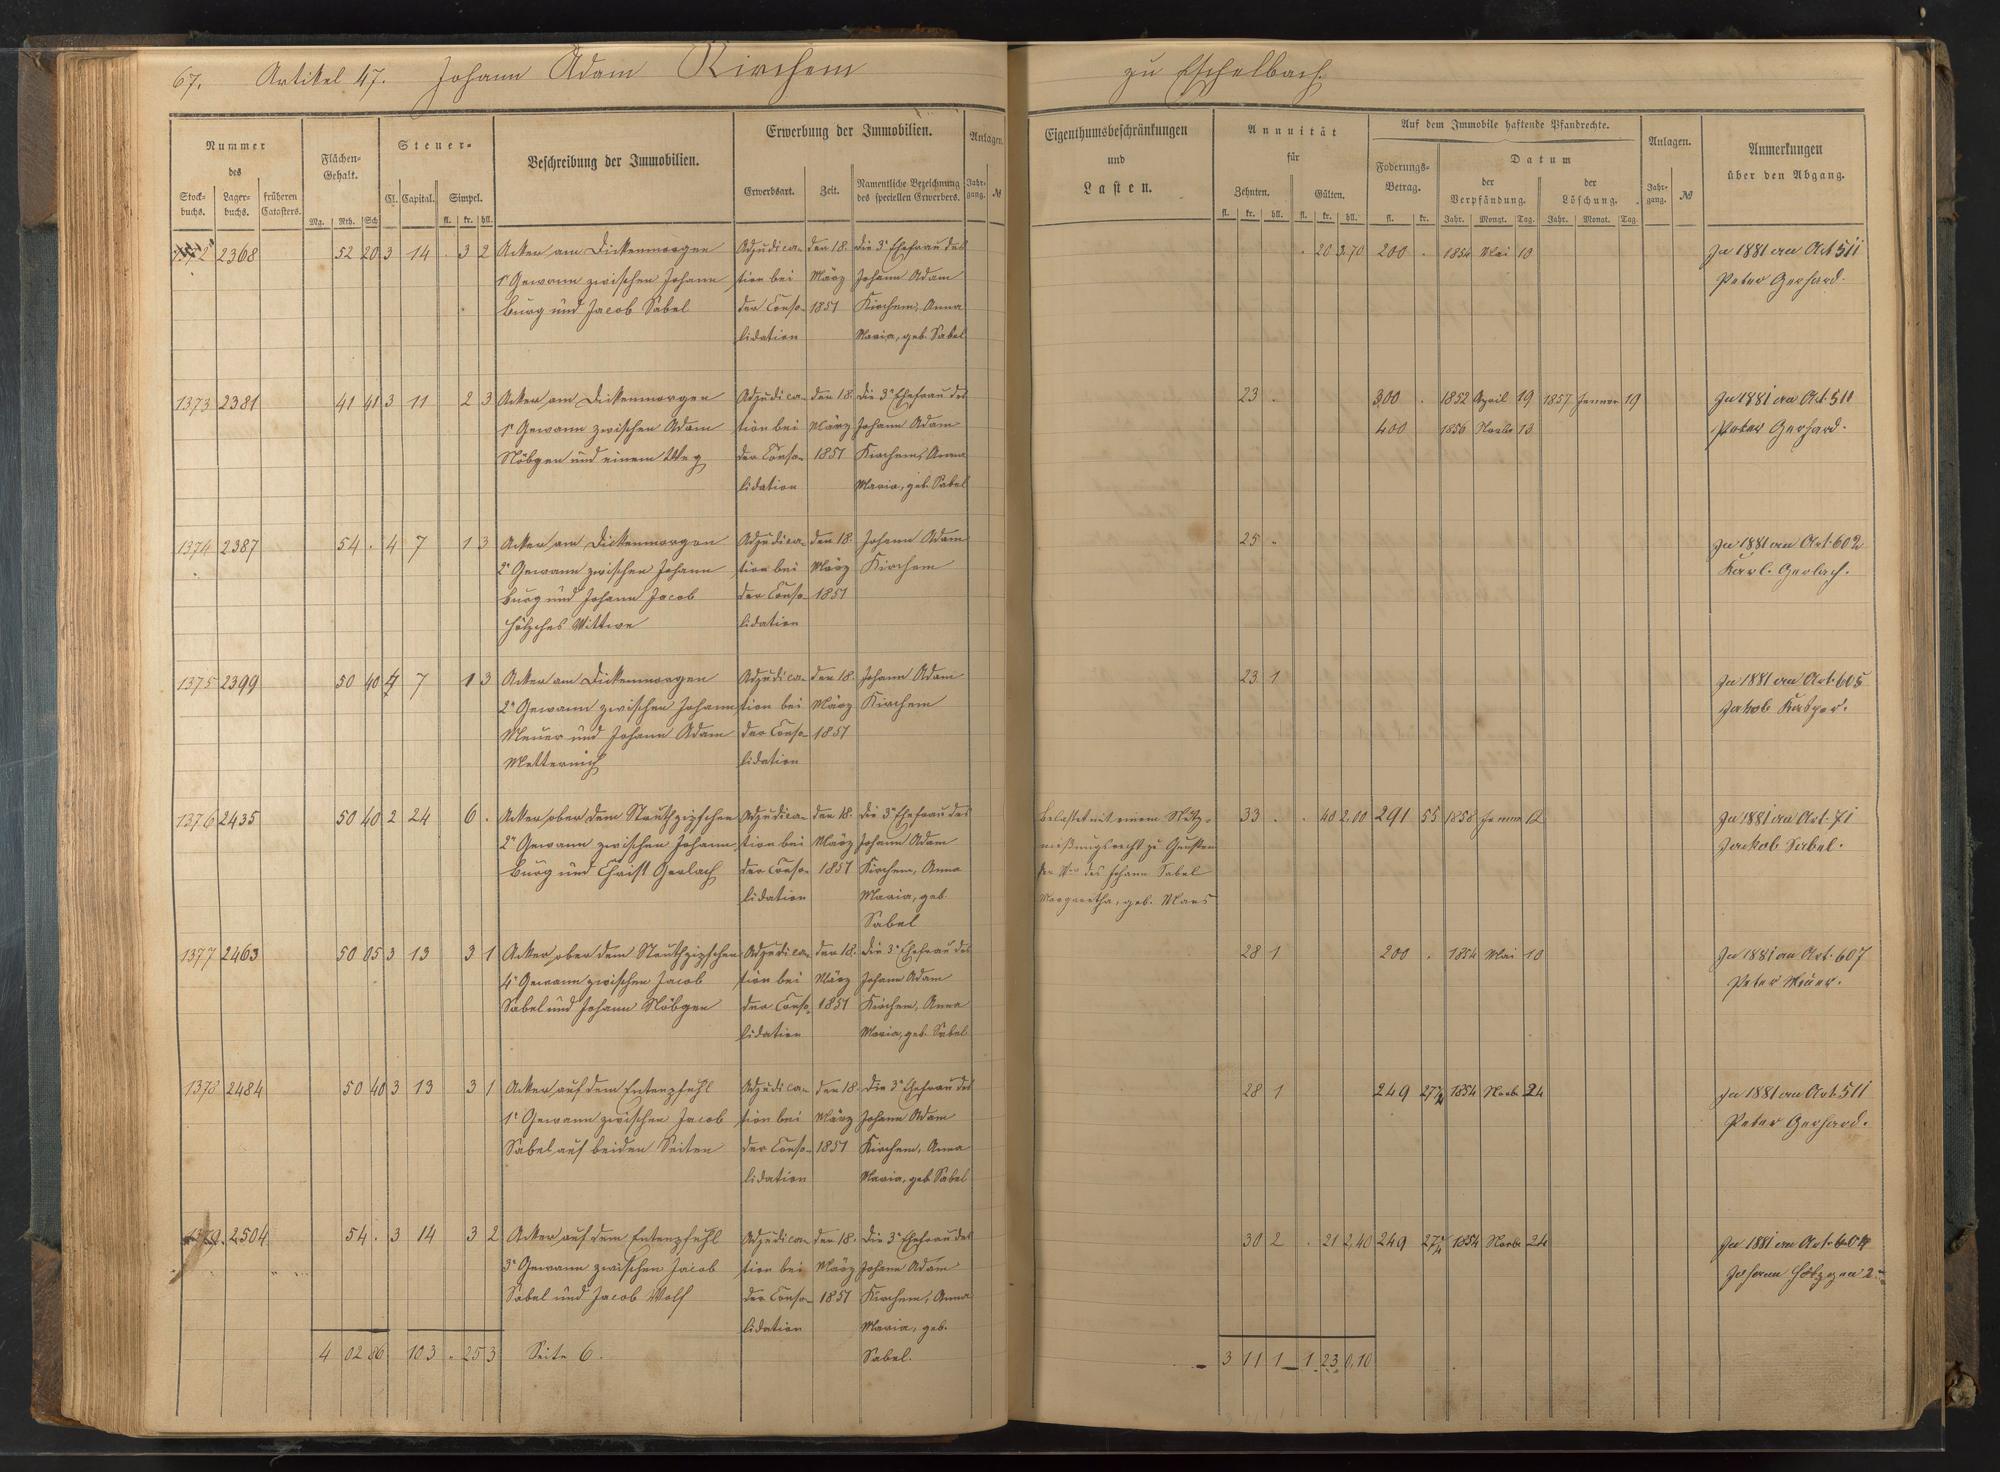 67. Artikel 47. Johann Adam Kirchem zu Eschelbach.
Nummer des
Stockbuchs. Lagerbuchs. früheren Catasters.
Flächen-Gehalt.
Mg. Rth. Sch
Steuer-
Cl. Capital. Simpel.
fl. kr. hll.
Beschreibung der Immobilien.
Erwerbung der Immobilien.
Erwerbsart. Zeit. Namentliche Bezeichnung des speciellen Erwerbers.
Anlagen.
Jahrgang. №
Eigenthumsbeschränkungen
und
Lasten.
Annuität
für
Zehnten. Gülten.
fl. kr. hll. fl. kr. hll.
Auf dem Immobile haftende Pfandrechte.
Foderungs-Betrag.
fl. kr.
Datum
der Verpfändung. der Löschung.
Jahr. Monat. Tag. Jahr. Monat. Tag.
Anlagen.
Jahrgang. №
Anmerkungen
über den Abgang.
1372 2368 52 20 3 14 . 3 2 Acker am Dickenmorgen Adjudica- den 18. die 3e Ehefrau des . 20 3,70 200 . 1854 Mai 10 In 1881 an Art 511
1e Gewann zwischen Johann tion bei März Johann Adam Peter Gerhard.
Burg und Jacob Sabel der Conso- 1851 Kirchem, Anna
lidation Maria, geb. Sabel
1373 2381 41 41 3 11 2 3 Acker am Dickenmorgen Adjudica- den 18. die 3e Ehefrau des 23 . 300 . 1852 April 19 1857 Januar 19 In 1881 an Art. 511
1e Gewann zwischen Adam tion bei März Johann Adam 400 1856 Novbr 13 Peter Gerhard.
Nöbgen und einem Weg der Conso- 1851 Kirchem, Anna
lidation Maria, geb. Sabel
1374 2387 54 . 4 7 1 3 Acker am Dickenmorgen Adjudica- den 18. Johann Adam 25 . In 1881 an Art. 602
2e Gewann zwischen Johann tion bei März Kirchem Karl Gerlach.
Burg und Johann Jacob der Conso- 1851
Wittwe lidation
1375 2399 50 40 4 7 1 3 Acker am Dickenmorgen Adjudica- den 18. Johann Adam 23 1 In 1881 an Art. 605
2e Gewann zwischen Johann tion bei März Kirchem Jakob Kasper.
Meuer und Johann Adam der Conso- 1851
Metternich lidation
1376 2435 50 40 2 24 6 . Acker ober dem Adjudica- den 18. die 3e Ehefrau des Belastet mit einem Nutz- 33 . . 40 2,00 291 55 1858 In 1881 an Art. 71
2e Gewann zwischen Johann tion bei März Johann Adam nießungsrecht zu Gunsten Jakob Sabel.
Burg und Christ Gerlach der Conso- 1851 Kirchem, Anna des Johann Sabel
lidation Maria, geb. Margaretha, geb.
Sabel
1377 2463 50 05 3 13 3 1 Acker ober dem Adjudica- den 18. die 3e Ehefrau des 28 1 200 . 1854 Mai 10 In 1881 an Art. 607
4e Gewann zwischen Jacob tion bei März Johann Adam Peter Meuer.
Sabel und Johann Nöbgen der Conso- 1851 Kirchem, Anna
lidation Maria, geb. Sabel
1378 2484 50 40 3 13 3 1 Acker auf dem Entenpfuhl Adjudica- den 18. die 3e Ehefrau des 28 1 249 1854 Novbr 24 In 1881 an Art. 511
1e Gewann zwischen Jacob tion bei März Johann Adam Peter Gerhard.
Sabel auf beiden Seiten der Conso- 1851 Kirchem, Anna
lidation Maria, geb Sabel
1379. 2504 54 . 3 14 3 2 Acker auf dem Entenpfuhl Adjudica- den 18. die 3e Ehefrau des 30 2 . 21 2,40 249 1854 Novbr 24 In 1881 an Art. 604
3e Gewann zwischen Jacob tion bei März Johann Adam Johann
Sabel und Jacob Wolf der Conso- 1851 Kirchem, Anna
lidation Maria, geb.
4 02 86 103 . 25 3 Seite 6. Sabel. 3 11 1 1 23 0,10